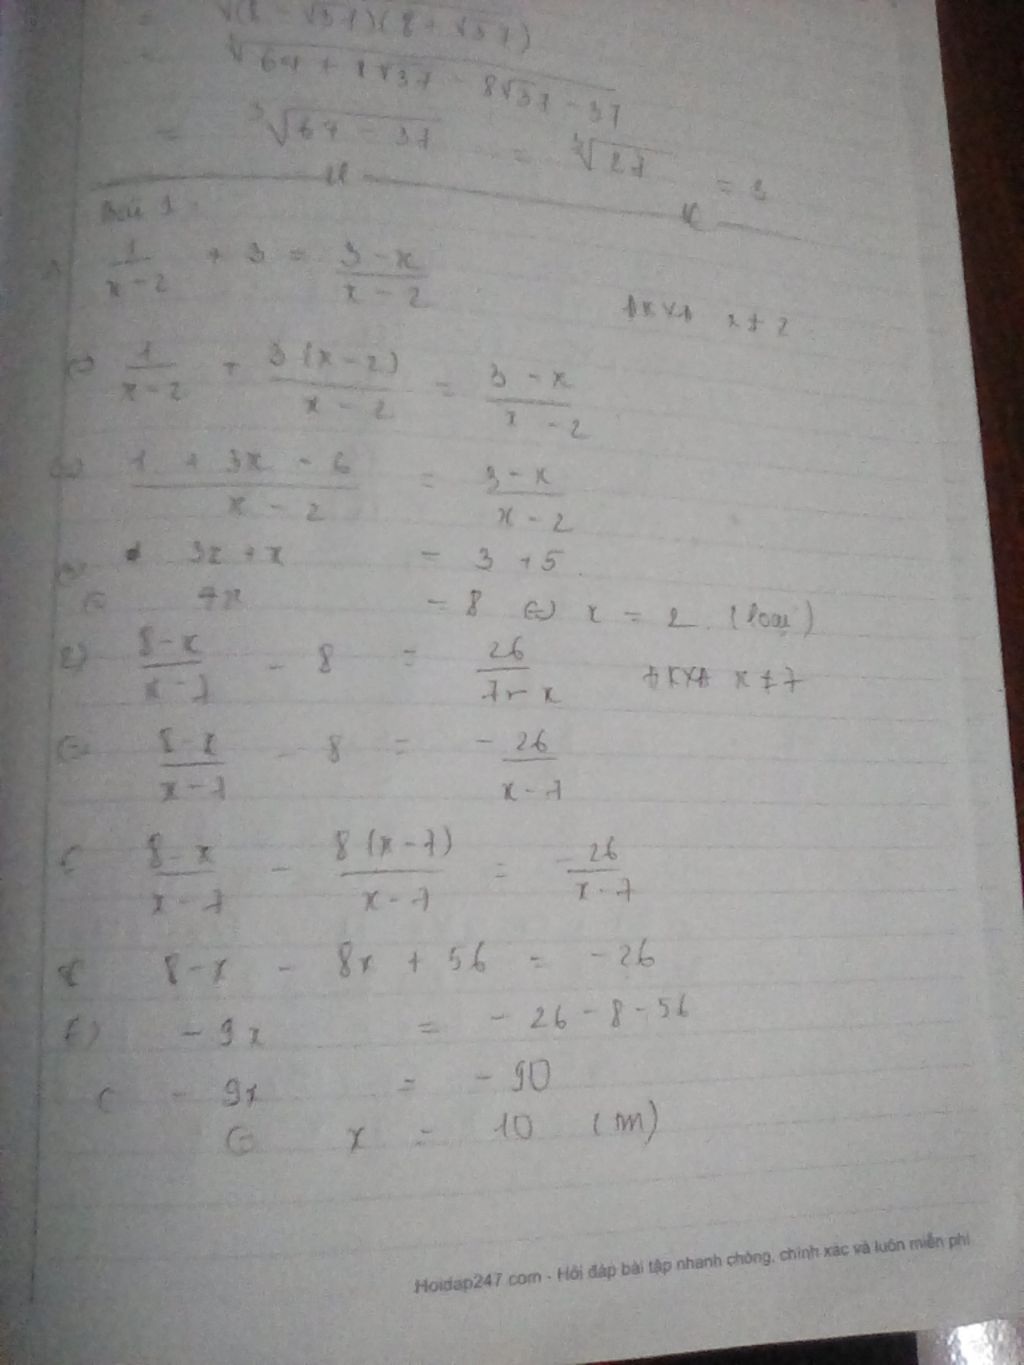 = ∛(8 - √37)(8 + √37)
= ∛64 + 8√37 - 8√37 - 37
= ∛64 - 37 = ∛27 = 3
Bài 1:
1/(x-2) + 3 = (3-x)/(x-2) ĐKXĐ x ≠ 2
(=) 1/(x-2) + 3(x-2)/(x-2) = (3-x)/(x-2)
(=) (1 + 3x - 6)/(x-2) = (3-x)/(x-2)
(=) 3x + x = 3 + 5
(=) 4x = 8 (=) x = 2 (loại)
2) (8-x)/(x-7) - 8 = 26/(7-x) ĐKXĐ x ≠ 7
(=) (8-x)/(x-7) - 8 = -26/(x-7)
(=) (8-x)/(x-7) - 8(x-7)/(x-7) = -26/(x-7)
(=) 8-x - 8x + 56 = -26
(=) -9x = -26-8-56
(=) -9x = -90
(=) x = 10 (tm)
Hoidap247.com - Hỏi đáp bài tập nhanh chóng, chính xác và luôn miễn phí